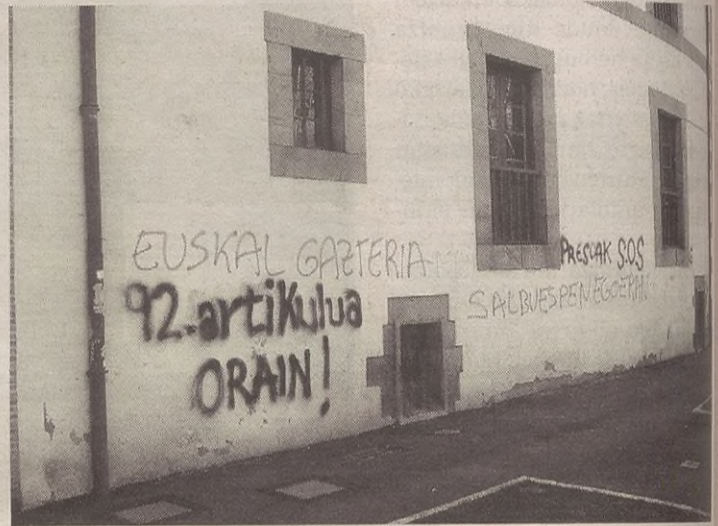 EUSKAL GAZTERIA
92.artikulua
ORAIN!
PRESOAK S.O.S
SALBUESPEN EGOERAN